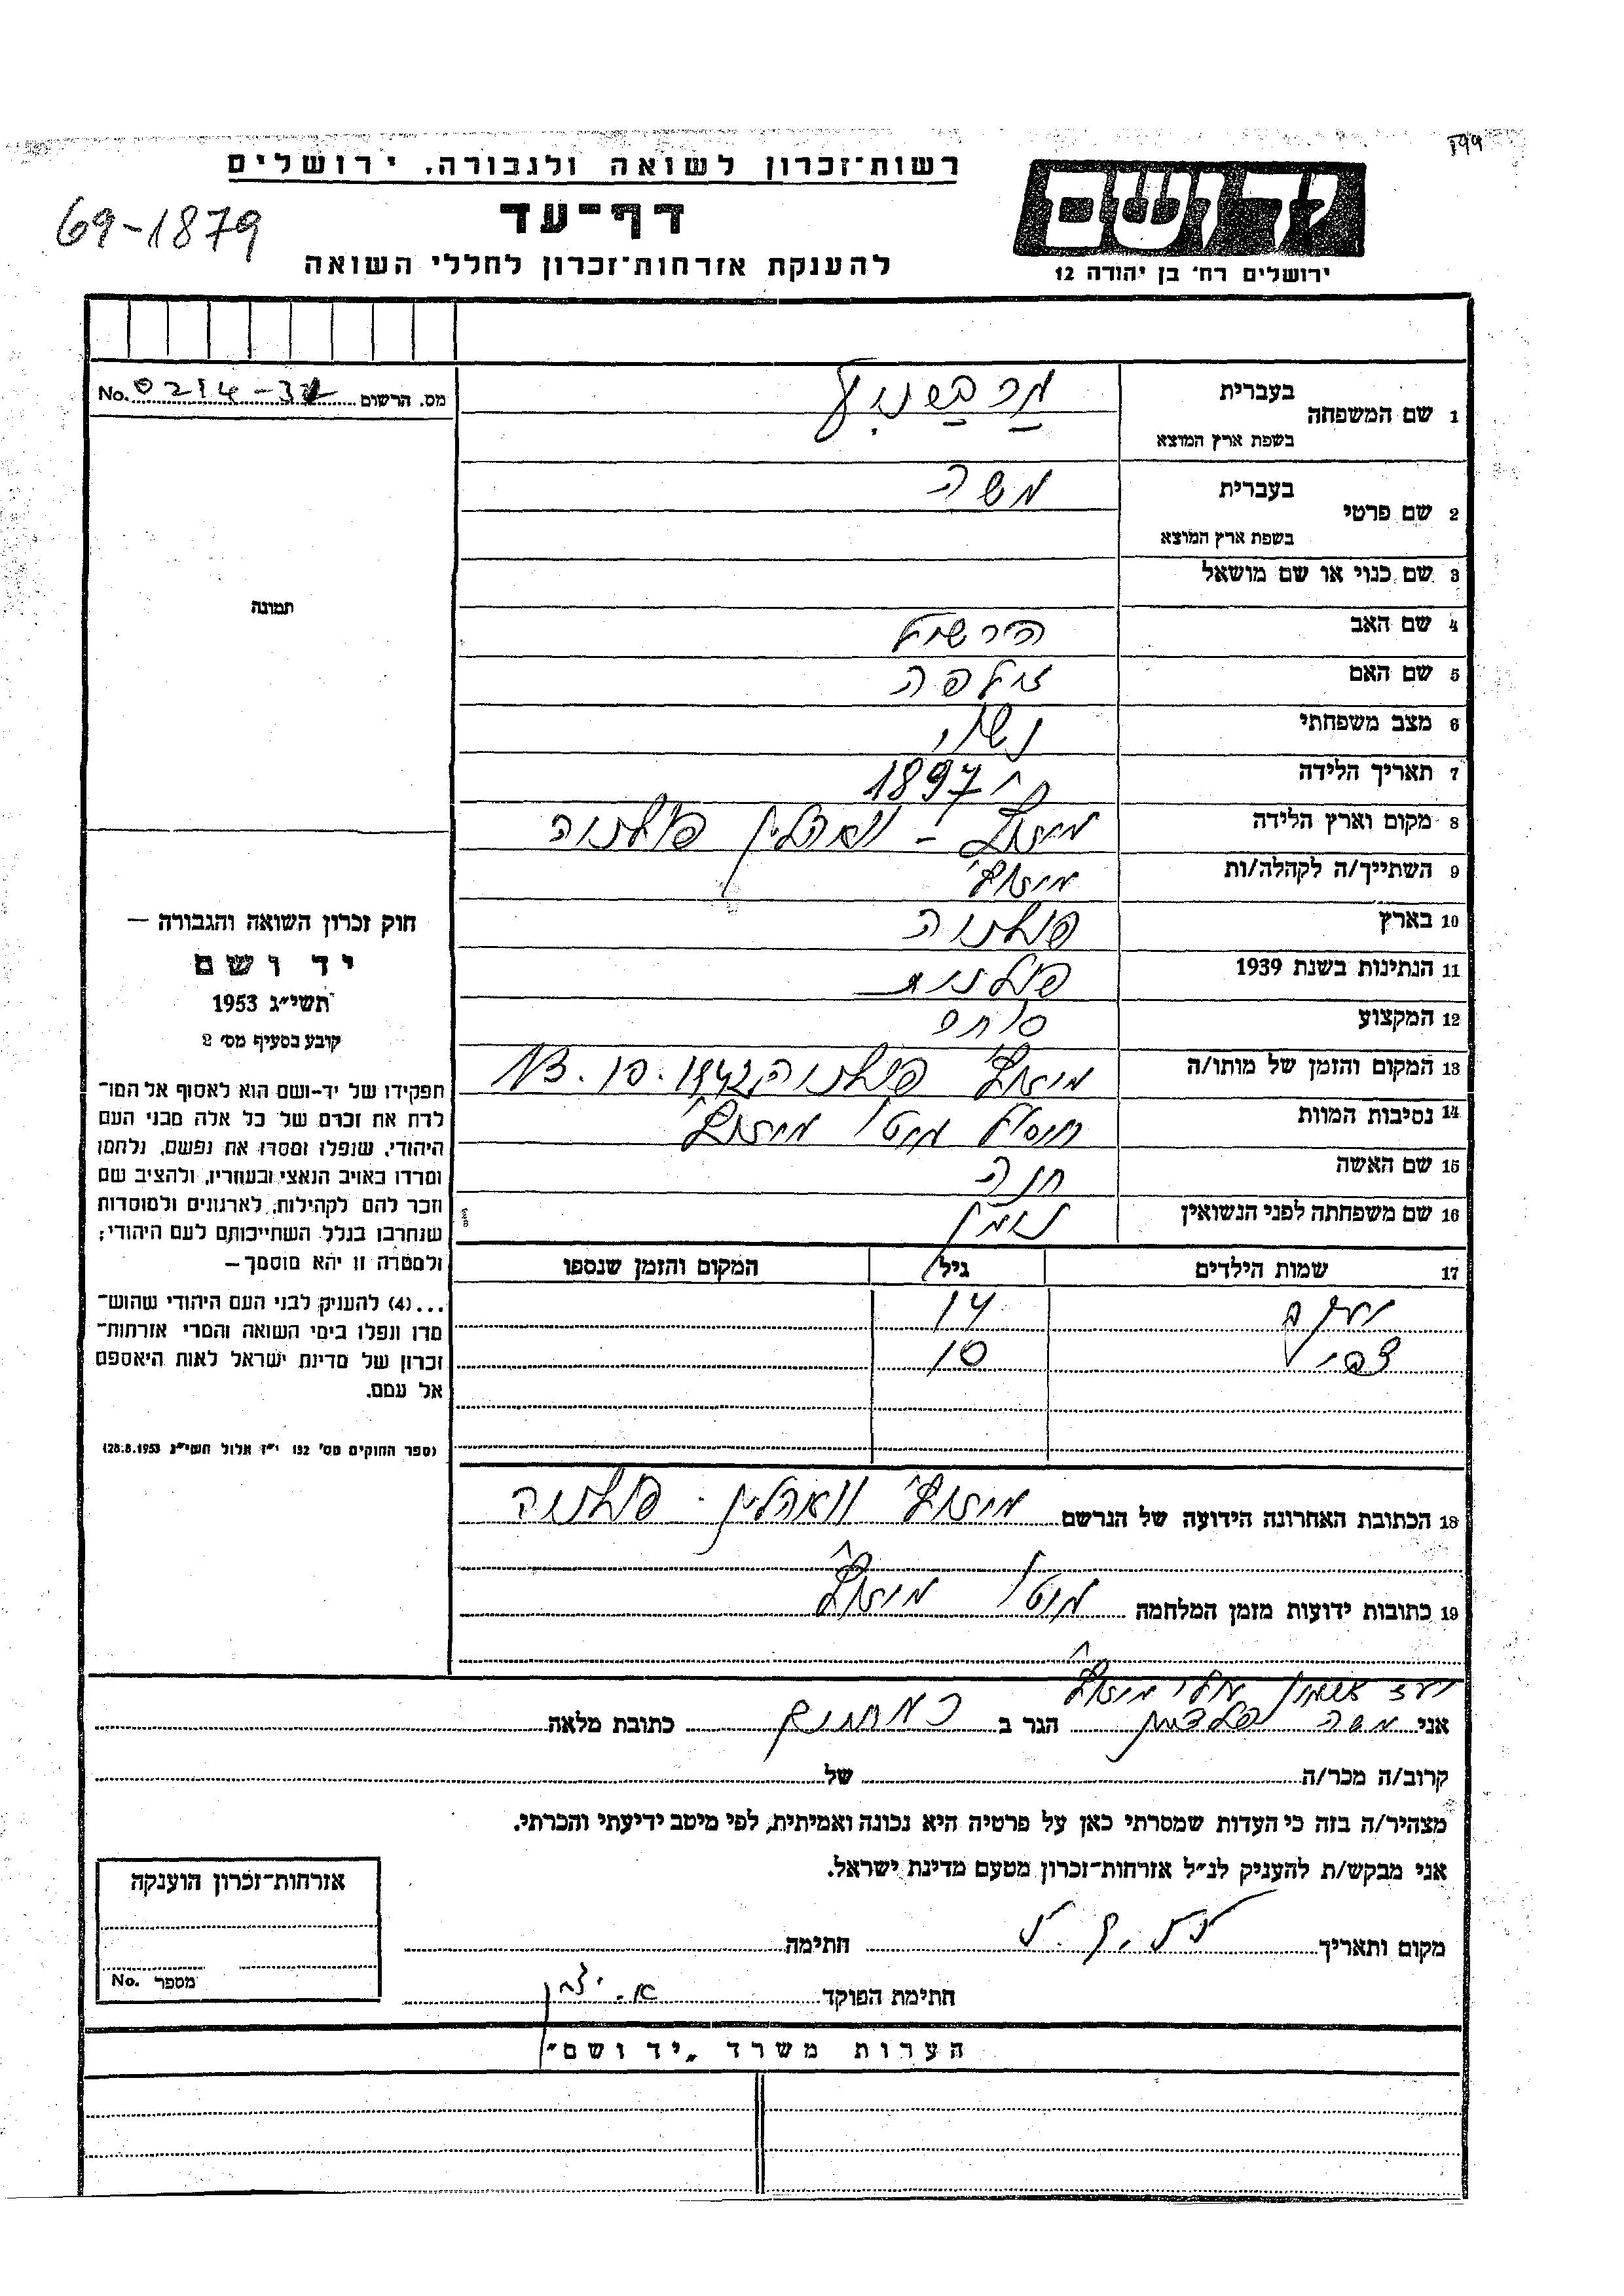 רשות־זכרון לשואה ולגבורה, ירושלים
דף־עד
להענקת אזרחות־זכרון לחללי השואה
69-1879
יד ושם
ירושלים רח' בן יהודה 12
מס. הרשום No. 0214-
1 שם המשפחה בעברית
בשפת ארץ המוצא
2 שם פרטי בעברית משה
בשפת ארץ המוצא
3 שם כנוי או שם מושאל
4 שם האב הירשל
5 שם האם זילפה
6 מצב משפחתי נשוי
7 תאריך הלידה 1897
8 מקום וארץ הלידה מיזוץ' - וואהלין פולניה
9 השתייך/ה לקהלה/ות מיזוץ'
10 בארץ פולניה
11 הנתינות בשנת 1939 פולנית
12 המקצוע סוחר
13 המקום והזמן של מותו/ה מיזוץ' פולניה 13.10.1942
14 נסיבות המוות חיסול גיטו מיזוץ'
15 שם האשה חנה
16 שם משפחתה לפני הנשואין
17 שמות הילדים גיל המקום והזמן שנספו
יעקב 14
צבי 10
18 הכתובת האחרונה הידועה של הנרשם מיזוץ' וואהלין - פולניה
19 כתובות ידועות מזמן המלחמה גיטו מיזוץ'
תמונה
חוק זכרון השואה והגבורה —
יד ושם
תשי"ג 1953
קובע בסעיף מס' 2
תפקידו של יד־ושם הוא לאסוף אל המו־
לדת את זכרם של כל אלה מבני העם
היהודי, שנפלו ומסרו את נפשם, נלחמו
ומרדו באויב הנאצי ובעוזריו, ולהציב שם
וזכר להם לקהילות, לארגונים ולמוסדות
שנחרבו בגלל השתייכותם לעם היהודי;
ולמטרה זו יהא מוסמך —
...(4) להעניק לבני העם היהודי שהוש־
מדו ונפלו בימי השואה והמרי אזרחות־
זכרון של מדינת ישראל לאות היאספם
אל עמם.
(ספר החוקים מס' 132 י"ז אלול תשי"ג 28.8.1953)
ועד ארגון יוצאי מיזוץ'
אני משה פלדמן הגר ב כתובת מלאה
קרוב/ה מכר/ה של
מצהיר/ה בזה כי העדות שמסרתי כאן על פרטיה היא נכונה ואמיתית, לפי מיטב ידיעתי והכרתי.
אני מבקש/ת להעניק לנ"ל אזרחות־זכרון מטעם מדינת ישראל.
מקום ותאריך חתימה
חתימת הפוקד
אזרחות־זכרון הוענקה
מספר No.
הערות משרד "יד ושם"